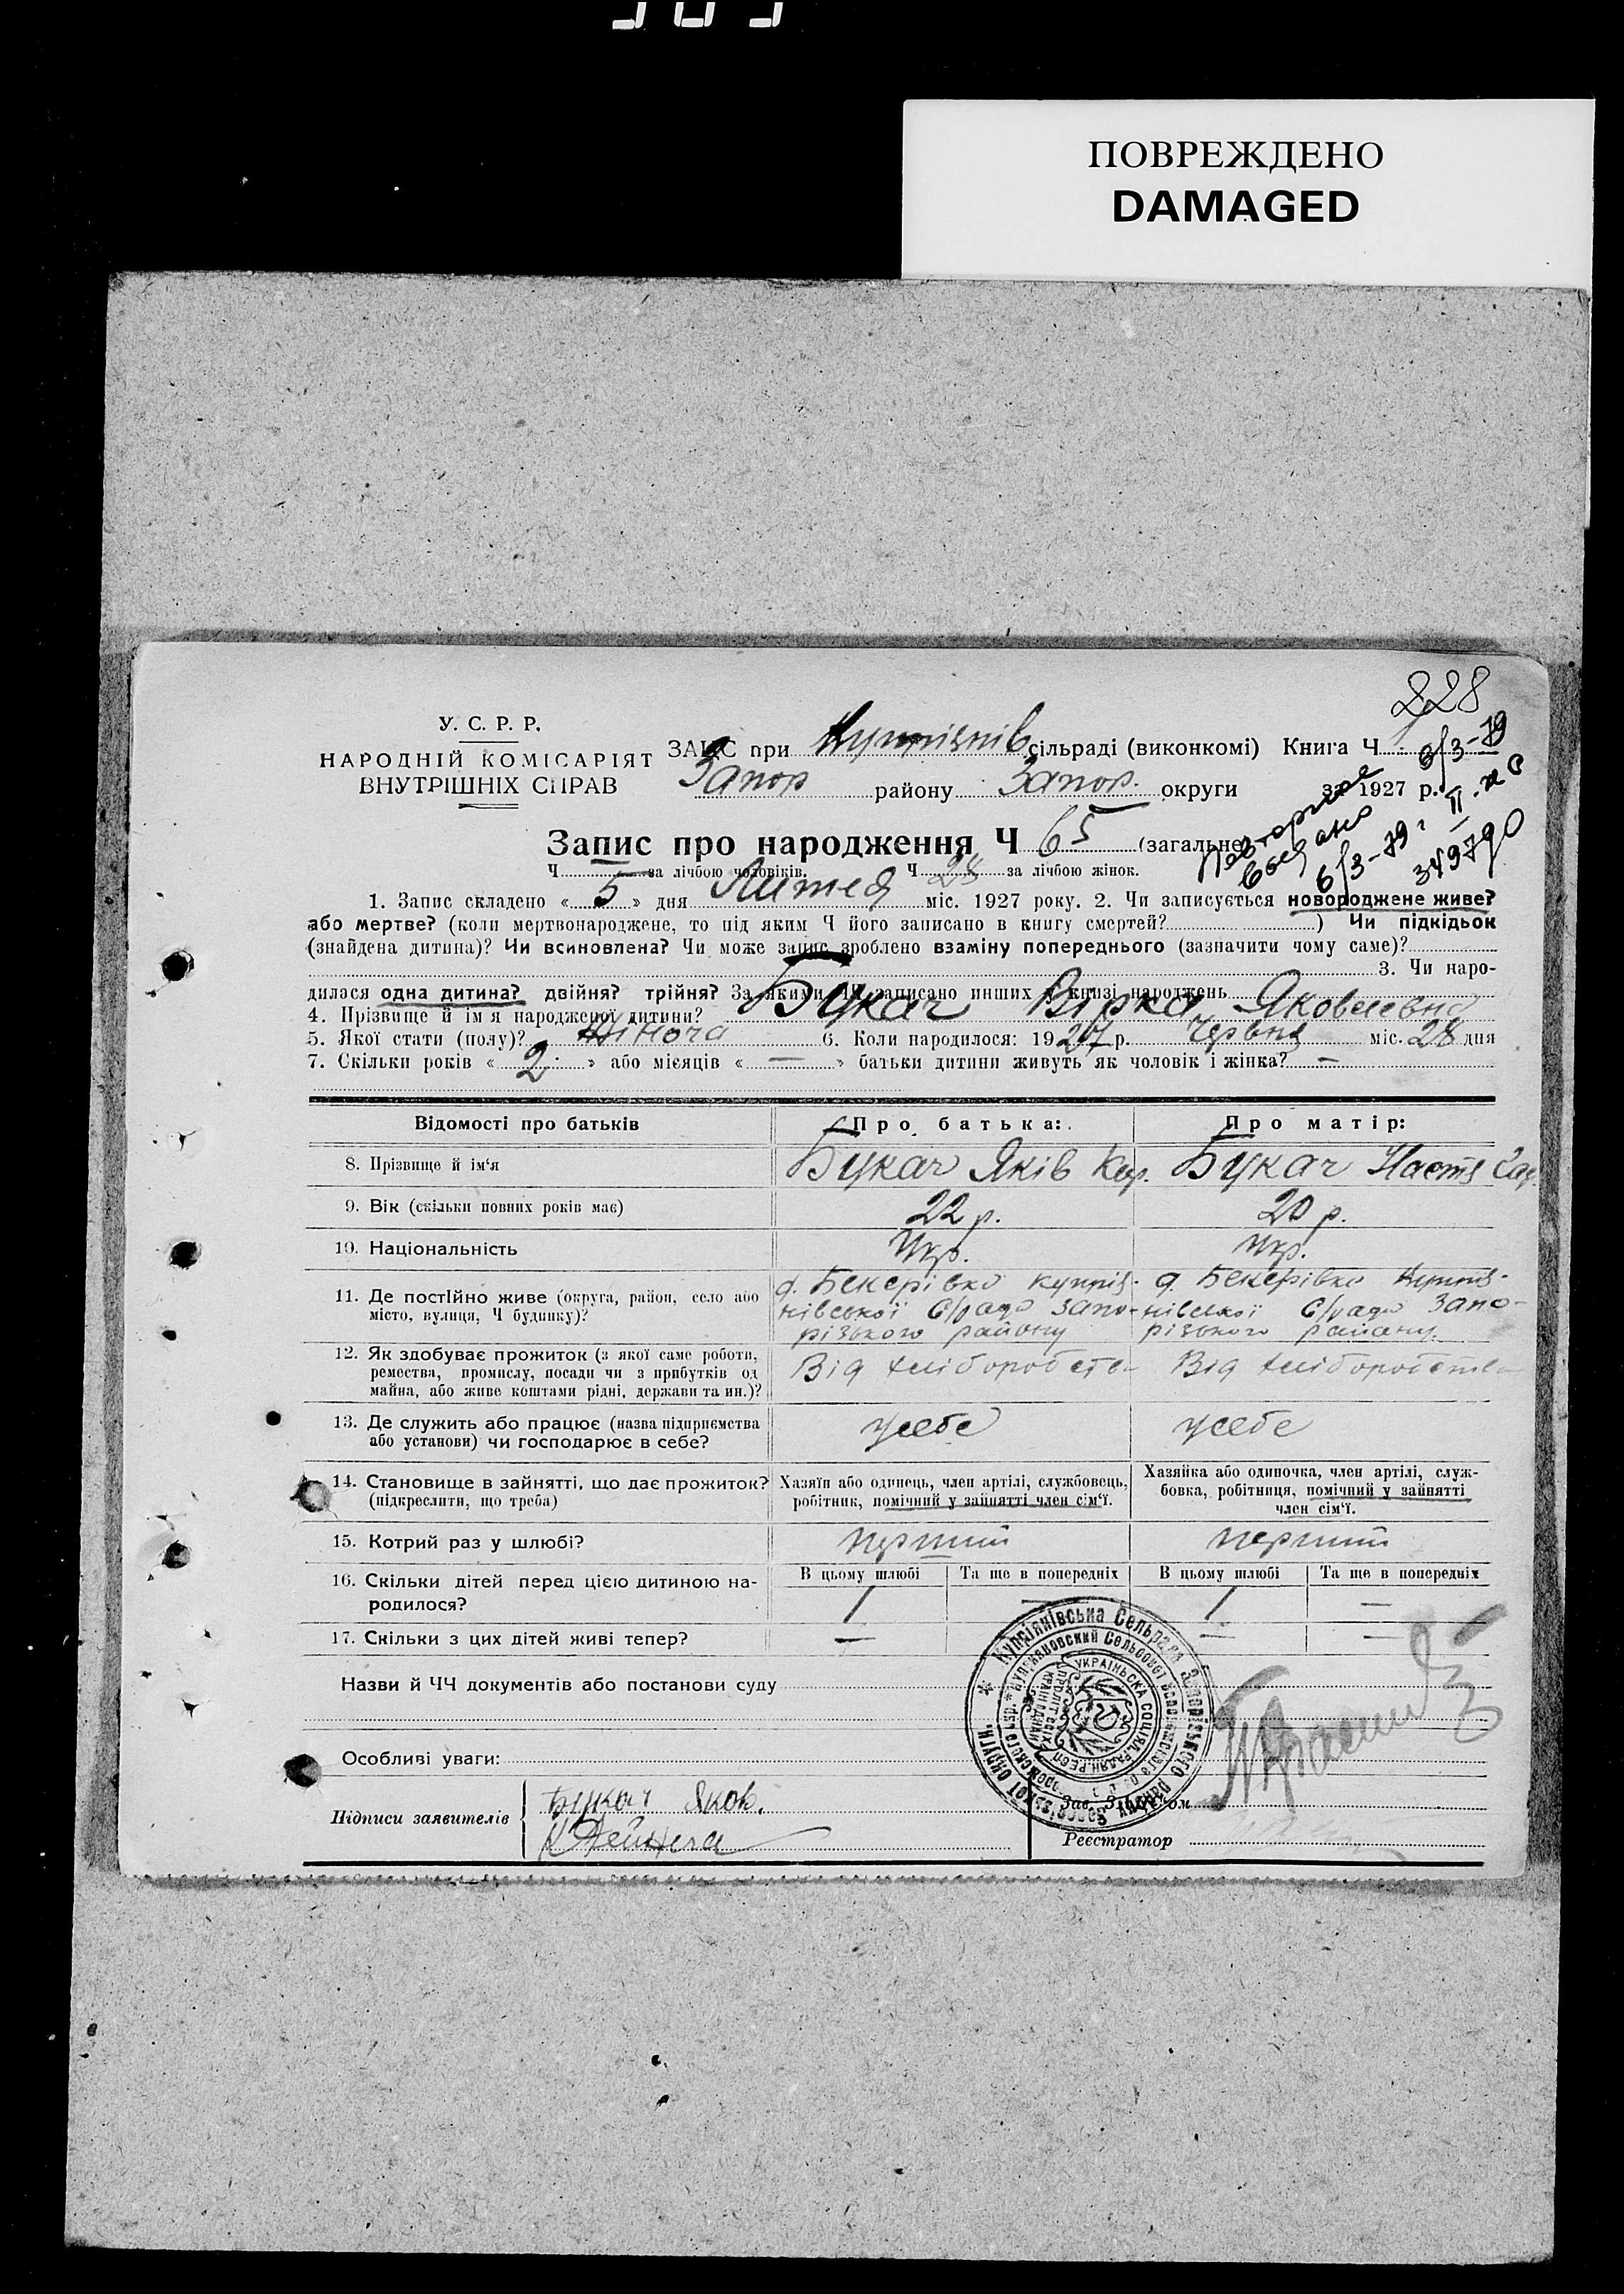 ПОВРЕЖДЕНО
DAMAGED
228
У. С. Р. Р.
НАРОДНІЙ КОМІСАРІЯТ
ВНУТРІШНІХ СПРАВ
ЗАГС при Купріянів сільраді (виконкомі) Книга Ч
Запор району Запор. округи за 1927 р.
6/3-79
Повторное
выдано
6/3-79 г II-ЖС
349790
Запис про народження Ч 65 (загальне)
Ч за лічбою чоловіків. Ч 28 за лічбою жінок.
1. Запис складено « 5 » дня Липня міс. 1927 року. 2. Чи записується новороджене живе?
або мертве? (коли мертвонароджене, то під яким Ч його записано в книгу смертей? ) Чи підкідьок
(знайдена дитина)? Чи всиновлена? Чи може запис зроблено взаміну попереднього (зазначити чому саме)?
3. Чи наро-
дилася одна дитина? двійня? трійня? За якими ЧЧ записано инших в книзі народжень
4. Прізвище й ім'я народженої дитини? Букач Вірка Яковлевна
5. Якої стати (полу)? Жіноча 6. Коли народилося: 1927 р. Червня міс. 28 дня
7. Скільки років « 2 » або місяців « — » батьки дитини живуть як чоловік і жінка? —
Відомості про батьків Про батька: Про матір:
8. Прізвище й ім'я Букач Яків Букач Настя
9. Вік (скільки повних років має) 22 р. 20 р.
10. Національність Укр. Укр.
11. Де постійно живе (округа, район, село або
місто, вулиця, Ч будинку)?
д. Бекерівка Купрія-
нівської С/рада Запо-
різького району
д. Бекерівка Купрія-
нівської С/рада Запо-
різького району
12. Як здобуває прожиток (з якої саме роботи,
ремества, промислу, посади чи з прибутків од
майна, або живе коштами рідні, держави та ин.)?
Від хліборобств Від хліборобства
13. Де служить або працює (назва підприємства
або установи) чи господарює в себе?
усебе усебе
14. Становище в зайнятті, що дає прожиток?
(підкреслити, що треба)
Хазяїн або одинець, член артілі, службовець,
робітник, помічний у зайнятті член сім'ї.
Хазяйка або одиночка, член артілі, служ-
бовка, робітниця, помічний у зайнятті
член сім'ї.
15. Котрий раз у шлюбі? перший перший
16. Скільки дітей перед цією дитиною на-
родилося?
В цьому шлюбі Та ще в попередніх В цьому шлюбі Та ще в попередніх
1 — 1 —
17. Скільки з цих дітей живі тепер? — — —
Назви й ЧЧ документів або постанови суду
Особливі уваги:
Підписи заявителів
Букач Яков.
Купріянівська Сельрада Запорізького району Запорізької округи
Купеяновский Сельсовет
УКРАЇНЬСКА СОЦІЯЛ. РАДЯН. РЕСП.
Зав. ЗАГС'ом
Реєстратор